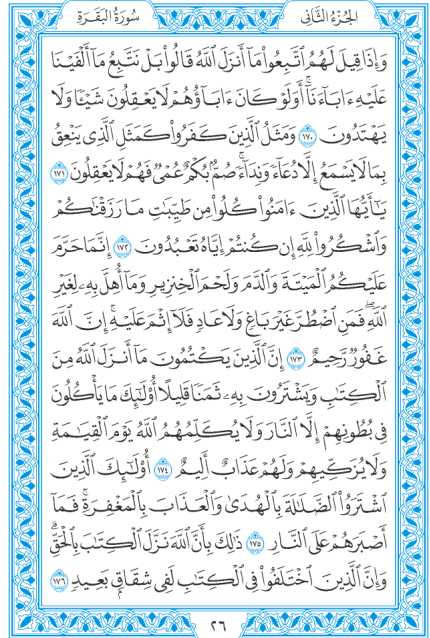 الجُزْءُ الثَّانِي
سُورَةُ البَقَرَةِ
وَإِذَا قِيلَ لَهُمُ ٱتَّبِعُوا۟ مَآ أَنزَلَ ٱللَّهُ قَالُوا۟ بَلْ نَتَّبِعُ مَآ أَلْفَيْنَا
عَلَيْهِ ءَابَآءَنَآ ۗ أَوَلَوْ كَانَ ءَابَآؤُهُمْ لَا يَعْقِلُونَ شَيْـًٔا وَلَا
يَهْتَدُونَ ١٧٠ وَمَثَلُ ٱلَّذِينَ كَفَرُوا۟ كَمَثَلِ ٱلَّذِى يَنْعِقُ
بِمَا لَا يَسْمَعُ إِلَّا دُعَآءً وَنِدَآءً ۚ صُمٌّۢ بُكْمٌ عُمْىٌ فَهُمْ لَا يَعْقِلُونَ ١٧١
يَـٰٓأَيُّهَا ٱلَّذِينَ ءَامَنُوا۟ كُلُوا۟ مِن طَيِّبَـٰتِ مَا رَزَقْنَـٰكُمْ
وَٱشْكُرُوا۟ لِلَّهِ إِن كُنتُمْ إِيَّاهُ تَعْبُدُونَ ١٧٢ إِنَّمَا حَرَّمَ
عَلَيْكُمُ ٱلْمَيْتَةَ وَٱلدَّمَ وَلَحْمَ ٱلْخِنزِيرِ وَمَآ أُهِلَّ بِهِۦ لِغَيْرِ
ٱللَّهِ ۖ فَمَنِ ٱضْطُرَّ غَيْرَ بَاغٍ وَلَا عَادٍ فَلَآ إِثْمَ عَلَيْهِ ۚ إِنَّ ٱللَّهَ
غَفُورٌ رَّحِيمٌ ١٧٣ إِنَّ ٱلَّذِينَ يَكْتُمُونَ مَآ أَنزَلَ ٱللَّهُ مِنَ
ٱلْكِتَـٰبِ وَيَشْتَرُونَ بِهِۦ ثَمَنًا قَلِيلًا ۙ أُو۟لَـٰٓئِكَ مَا يَأْكُلُونَ
فِى بُطُونِهِمْ إِلَّا ٱلنَّارَ وَلَا يُكَلِّمُهُمُ ٱللَّهُ يَوْمَ ٱلْقِيَـٰمَةِ
وَلَا يُزَكِّيهِمْ وَلَهُمْ عَذَابٌ أَلِيمٌ ١٧٤ أُو۟لَـٰٓئِكَ ٱلَّذِينَ
ٱشْتَرَوُا۟ ٱلضَّلَـٰلَةَ بِٱلْهُدَىٰ وَٱلْعَذَابَ بِٱلْمَغْفِرَةِ ۚ فَمَآ
أَصْبَرَهُمْ عَلَى ٱلنَّارِ ١٧٥ ذَٰلِكَ بِأَنَّ ٱللَّهَ نَزَّلَ ٱلْكِتَـٰبَ بِٱلْحَقِّ ۗ
وَإِنَّ ٱلَّذِينَ ٱخْتَلَفُوا۟ فِى ٱلْكِتَـٰبِ لَفِى شِقَاقٍۭ بَعِيدٍ ١٧٦
٢٦